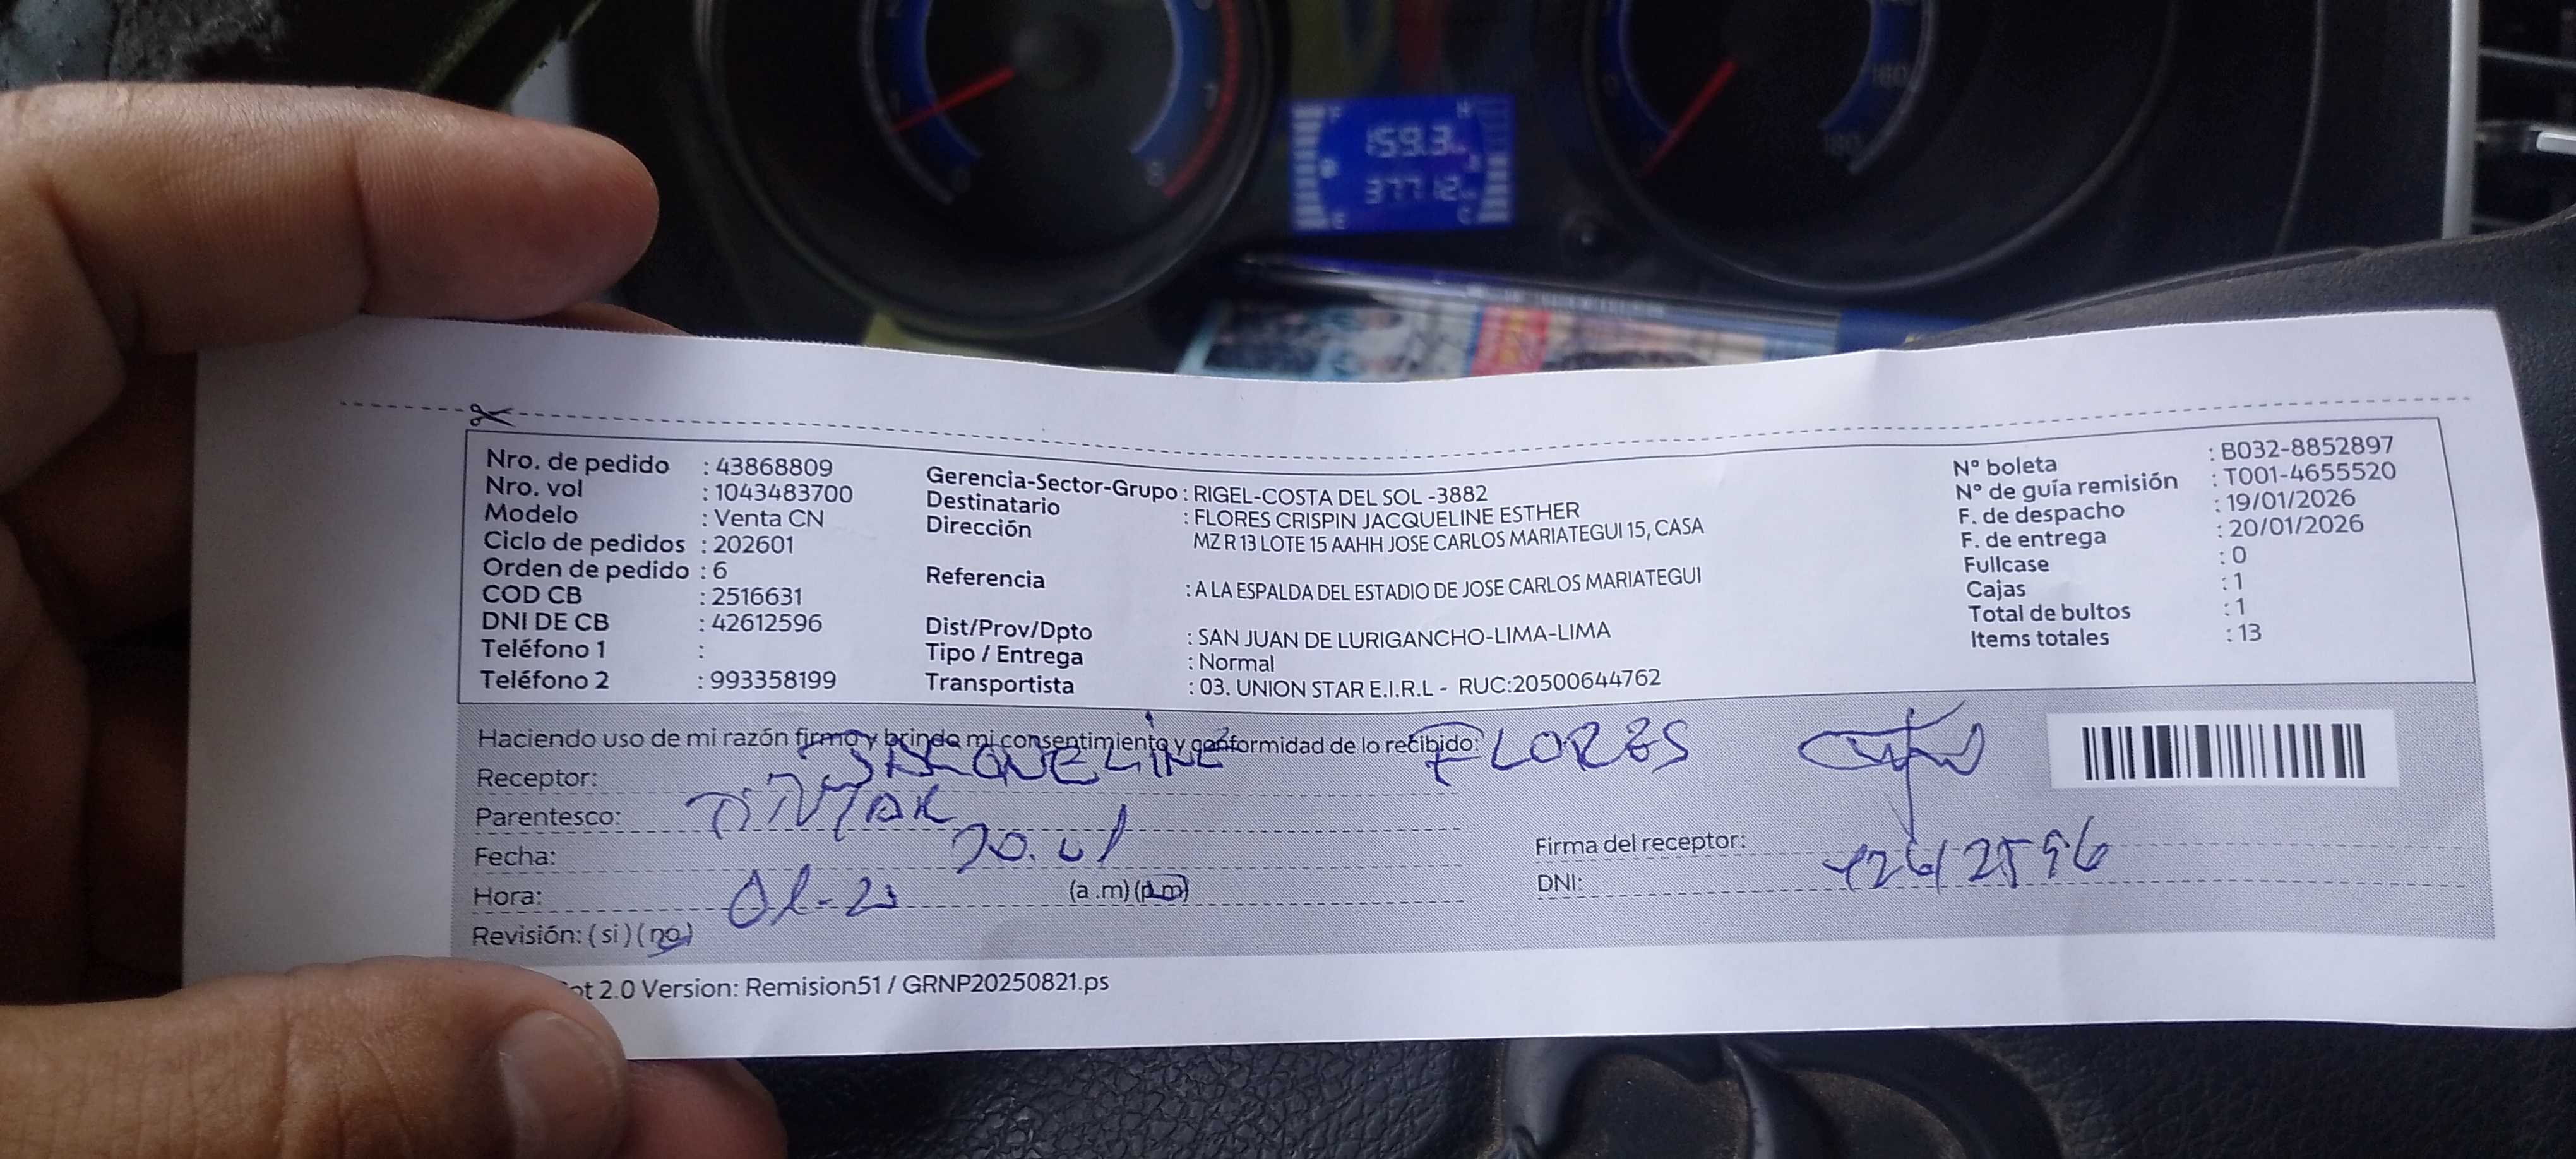 159.3
37712
160
180
Nro. de pedido : 43868809
Nro. vol : 1043483700
Modelo : Venta CN
Ciclo de pedidos : 202601
Orden de pedido : 6
COD CB : 2516631
DNI DE CB : 42612596
Teléfono 1 :
Teléfono 2 : 993358199
Gerencia-Sector-Grupo : RIGEL-COSTA DEL SOL -3882
Destinatario : FLORES CRISPIN JACQUELINE ESTHER
Dirección MZ R 13 LOTE 15 AAHH JOSE CARLOS MARIATEGUI 15, CASA
Referencia : A LA ESPALDA DEL ESTADIO DE JOSE CARLOS MARIATEGUI
Dist/Prov/Dpto : SAN JUAN DE LURIGANCHO-LIMA-LIMA
Tipo / Entrega : Normal
Transportista : 03. UNION STAR E.I.R.L - RUC:20500644762
N° boleta : B032-8852897
N° de guía remisión : T001-4655520
F. de despacho : 19/01/2026
F. de entrega : 20/01/2026
Fullcase : 0
Cajas : 1
Total de bultos : 1
Items totales : 13
Haciendo uso de mi razón firmo y brindo mi consentimiento y conformidad de lo recibido:
Receptor: JACQUELINE FLORES
Parentesco: TiTULAR
Fecha: 20.01
Hora: 01-20 (a .m) (p.m)
Revisión: ( si ) ( no )
Firma del receptor:
DNI: 42612596
ot 2.0 Version: Remision51 / GRNP20250821.ps